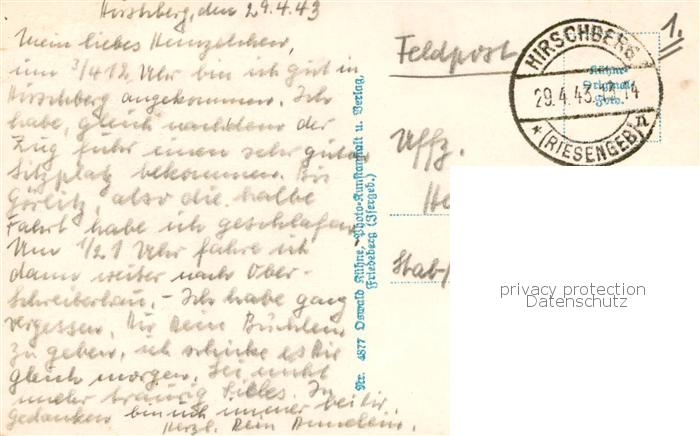 Hirschberg, den 29.4.43
Mein liebes Heinzelchen,
um 3/4 12 Uhr bin ich gut in
Hirschberg angekommen. Ich
habe, gleich nachdem der
Zug fuhr einen sehr guten
Sitzplatz bekommen. Bis
Görlitz, also die halbe
Fahrt habe ich geschlafen
Um 1/2 1 Uhr fahre ich
dann weiter nach Ober-
schreiberhau. - Ich habe ganz
vergessen, Dir Dein Büchlein
zu geben, ich schicke es Dir
gleich morgen. Sei nicht
mehr traurig Liebes. In
Gedanken bin ich immer bei Dir.
Herzl. Dein
Nr. 4877 Oswald Kühne, Photo-Kunstanstalt u. Verlag,
Friedeberg (Isergeb.)
1.
Feldpost
HIRSCHBERG
29.4.43.13-14
* (RIESENGEB) n
Kühne
Original
Foto.
Uffz.
He
Stab/
privacy protection
Datenschutz